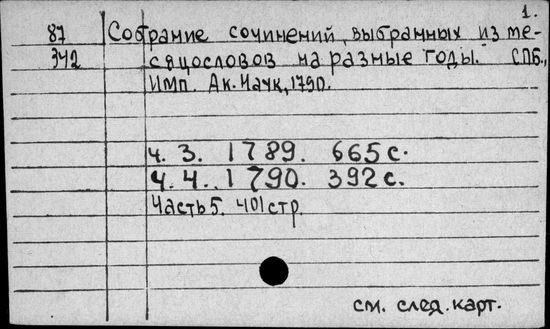 1.
87 Собрание сочинений, выбранных из ме-
342 сяцословов на разные годы. СПБ.,
Имп. Ак. Наук, 1790.
ч. 3. 1789. 665 с.
ч. 4. 1790. 392 с.
Часть 5. 401 стр.
см. след. карт.